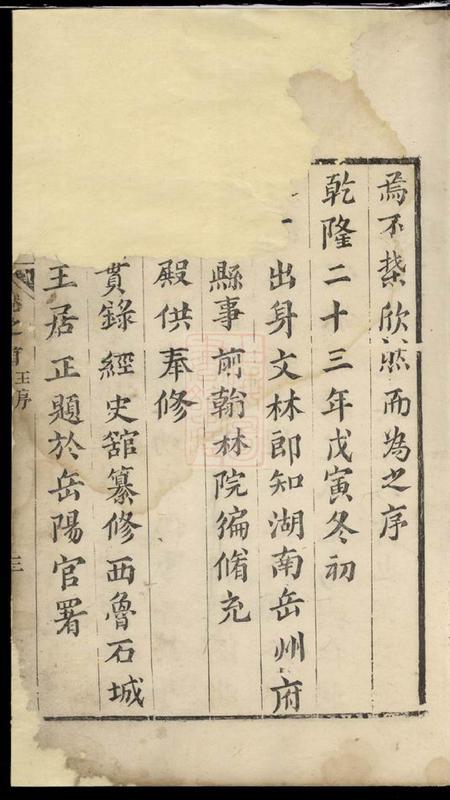 焉不禁欣然而為之序
乾隆二十三年戊寅冬初
出身文林郎知湖南岳州府
縣事前翰林院徧脩充
殿供奉修
實錄經史舘纂修西魯石城
王居正題於岳陽官署
卷之首 王序 三